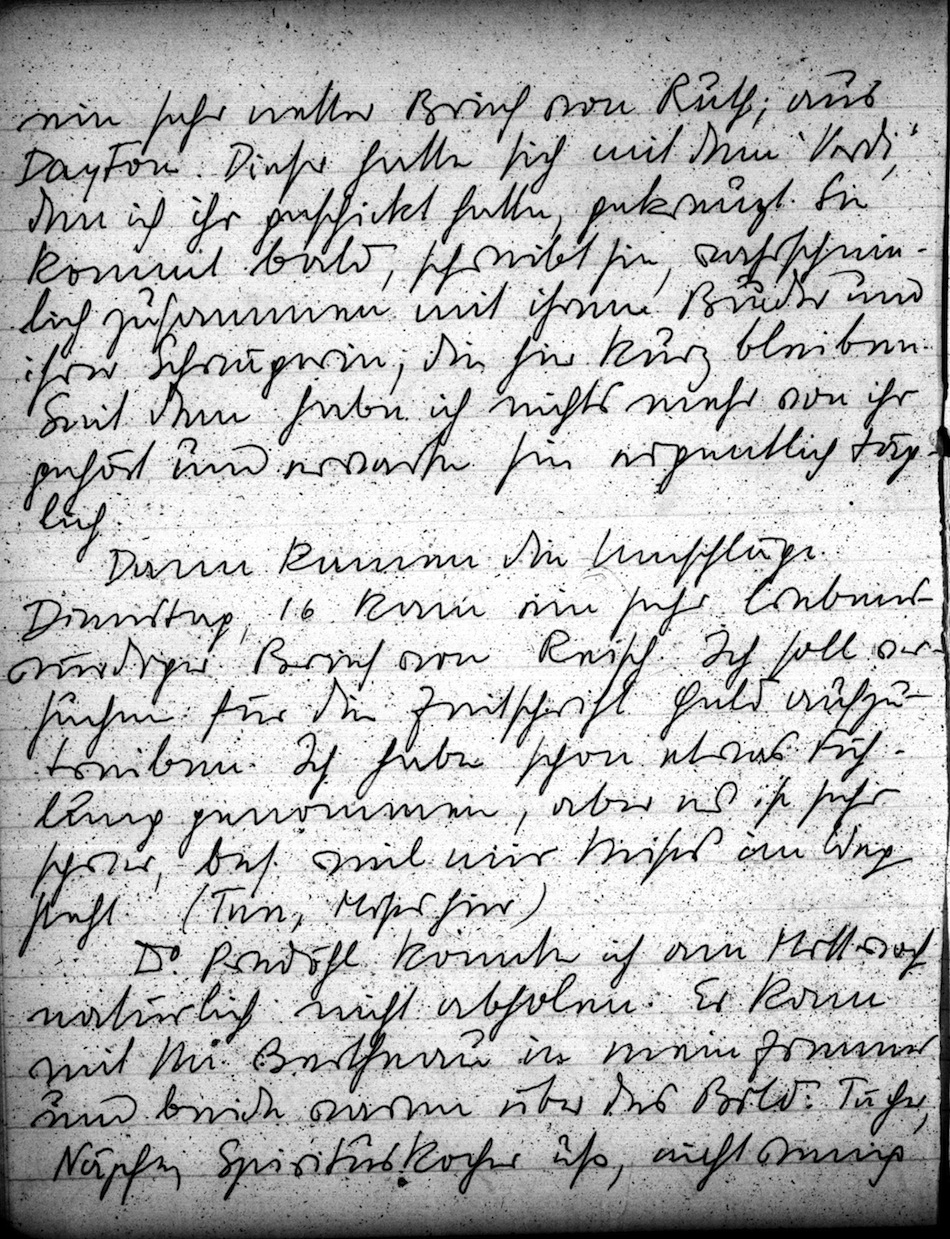 ein sehr netter Brief von Ruth, aus
Dayton. Dieser hatte sich mit dem "Verdi,"
den ich ihr geschickt hatte, gekreuzt. Sie
kommt bald, schreibt sie, wahrschein-
lich zusammen mit ihrem Bruder und
ihrer Schwägerin, die hier kurz bleiben.
Seit dem habe ich nichts mehr von ihr
gehört und erwarte sie eigentlich täg-
lich.
Dann kamen die Umschläge.
Dienstag, 16 kam ein sehr liebens-
würdiger Brief von Reisch. Ich soll ver-
suchen für die Zeitschrift Geld aufzu-
treiben. Ich habe schon etwas Füh-
lung genommen, aber es ist sehr
schwer, bes. weil mir Mises im Weg
steht. (Tun, Mises hier)
Dr. Predöhl konnte ich am Mittwoch
natürlich nicht abholen. Er kam
mit Mr. Bertheau in mein Zimmer
und beide waren über das Bild: Tücher,
Näpfe, Spirituskocher usw, nicht wenig